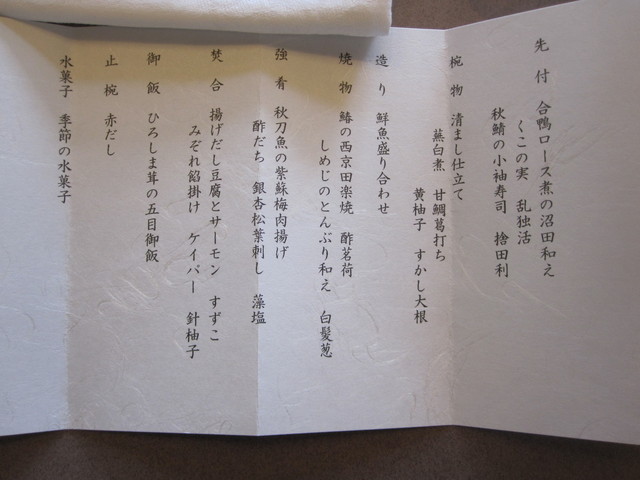 先付 合鴨ロース煮の沼田和え
くこの実 乱独活
秋鯖の小袖寿司 捨田利
椀物 清まし仕立て
蕪白煮 甘鯛葛打ち
黄柚子 すかし大根
造り 鮮魚盛り合わせ
焼物 鰆の西京田楽焼 酢茗荷
しめじのとんぶり和え 白髪葱
強肴 秋刀魚の紫蘇梅肉揚げ
酢だち 銀杏松葉刺し 藻塩
焚合 揚げだし豆腐とサーモン すずこ
みぞれ餡掛け ケイパー 針柚子
御飯 ひろしま茸の五目御飯
止椀 赤だし
水菓子 季節の水菓子